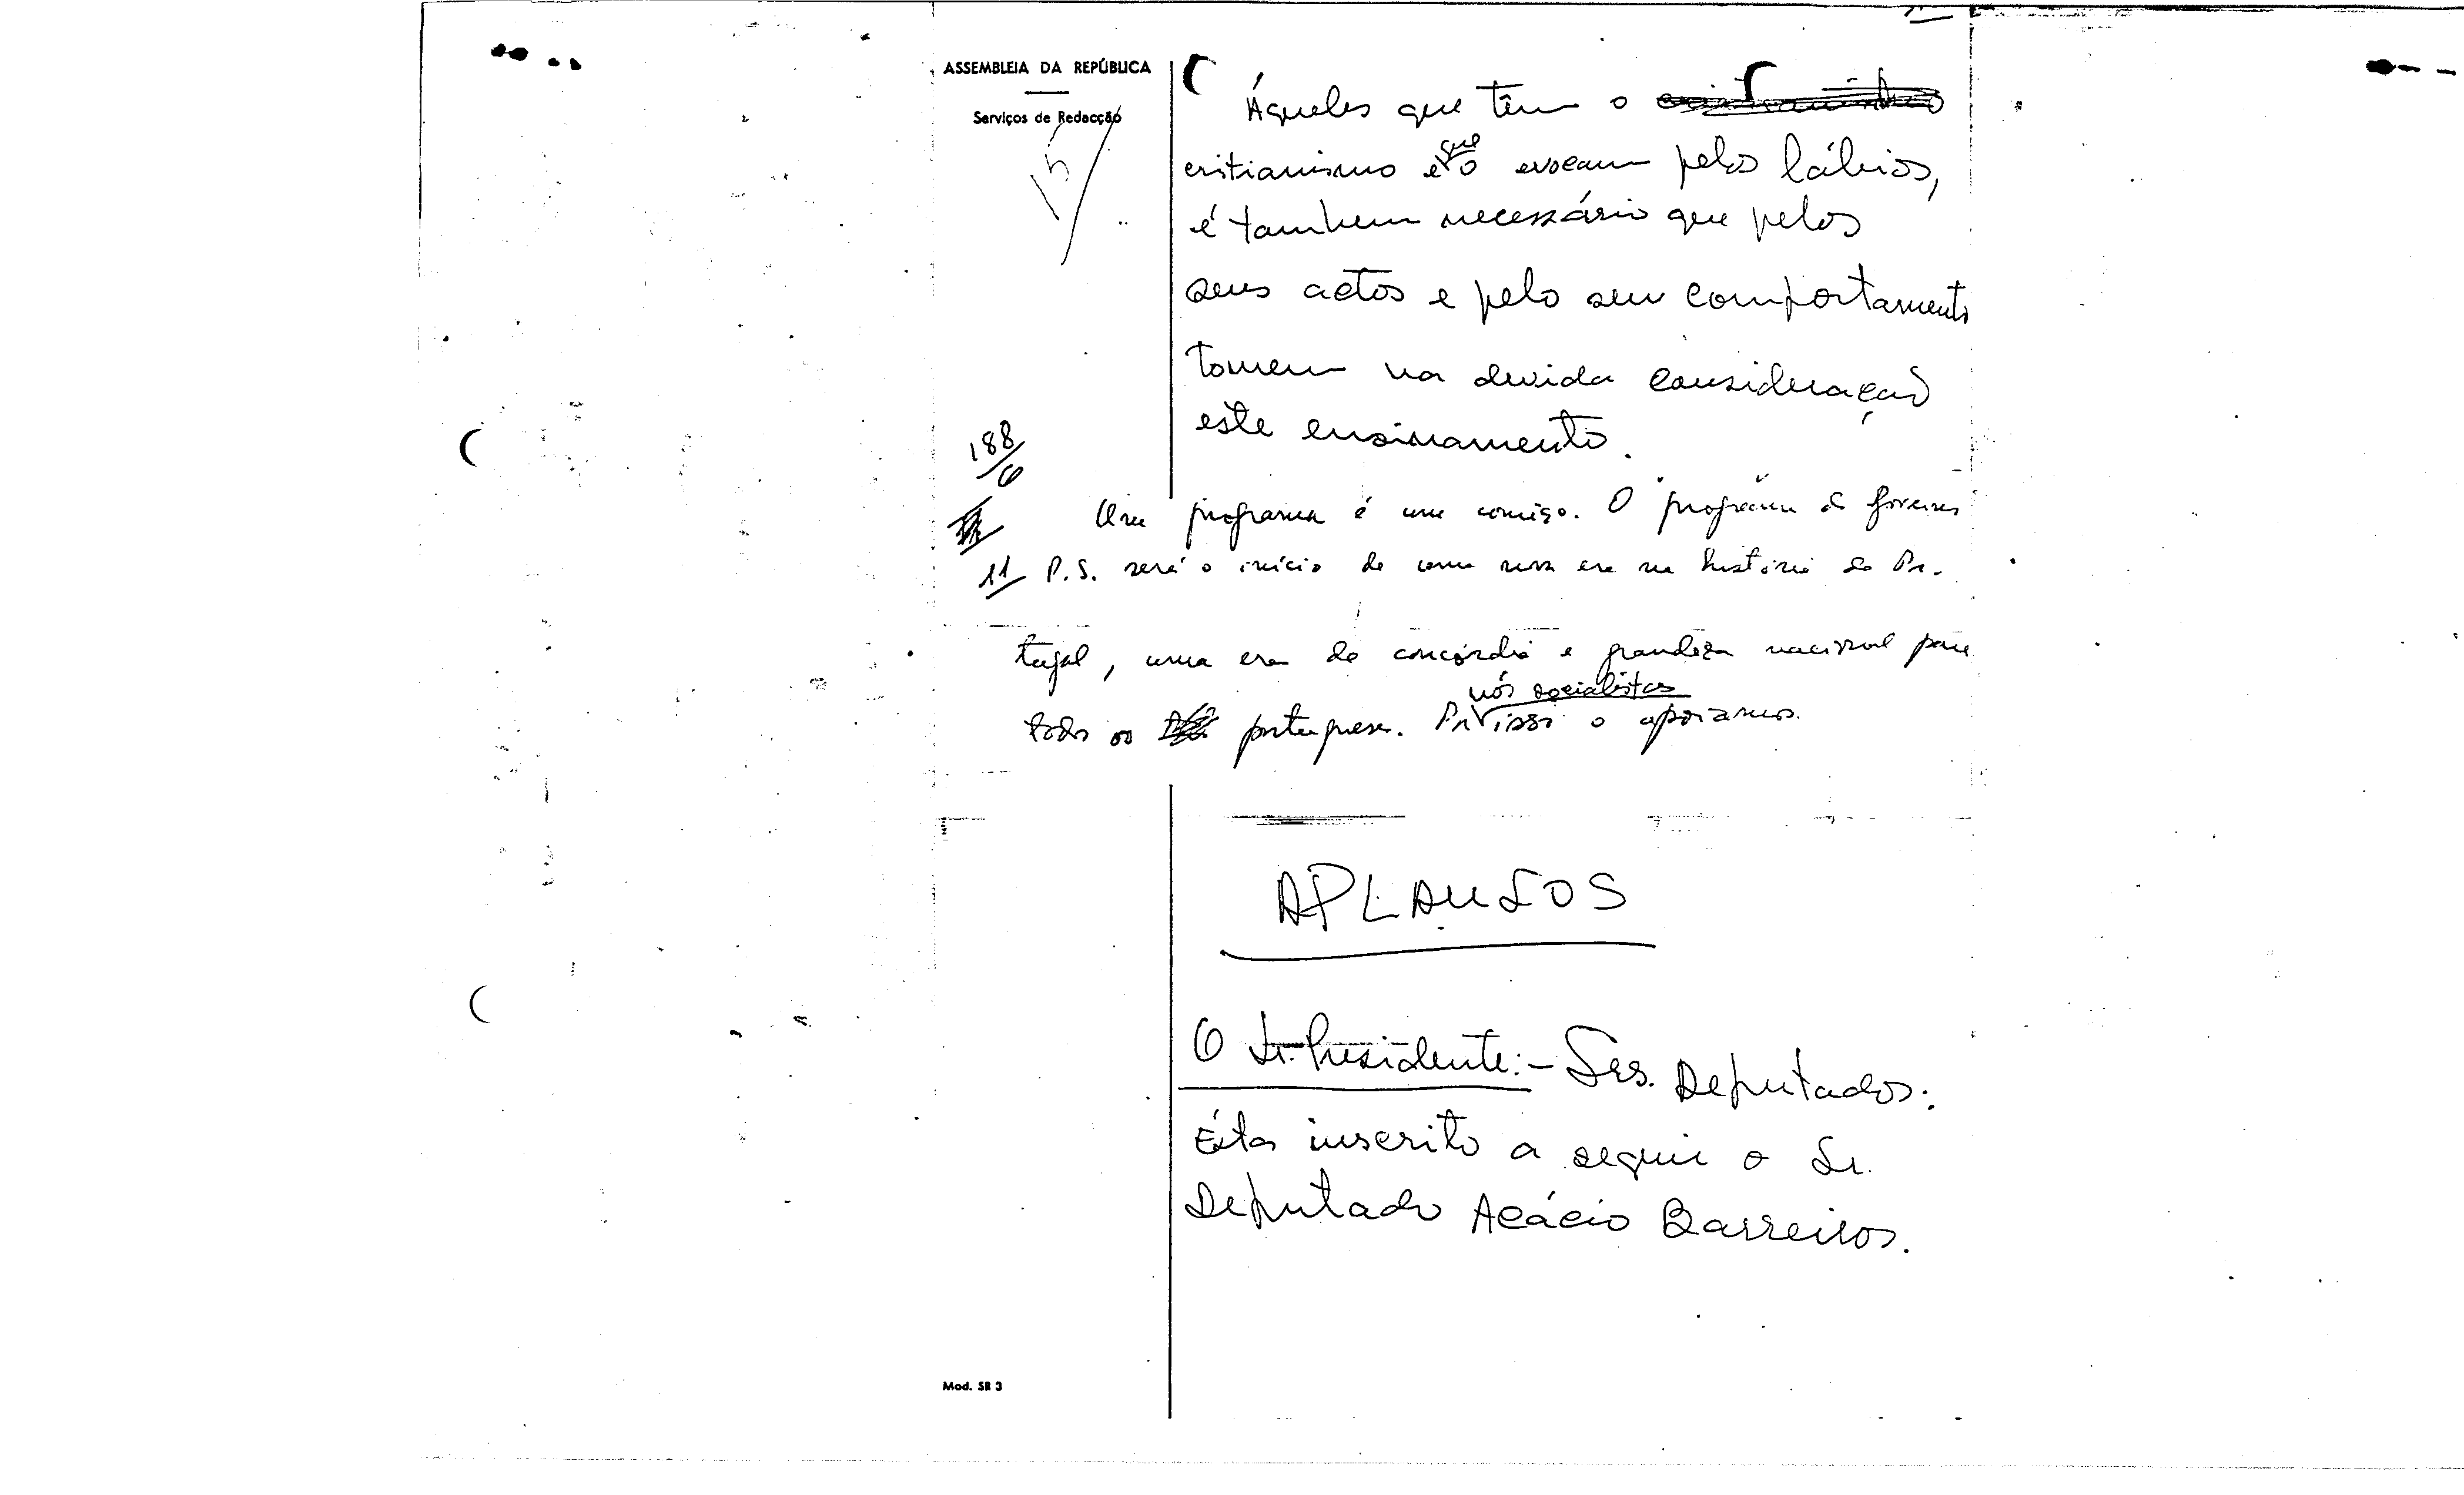 ASSEMBLEIA DA REPÚBLICA
Serviços de Redacção
15
Áqueles que têm o
cristianismo e que o evocam pelos lábios,
é tambem necessário que pelos
seus actos e pelo seu comportamento
tomem na devida consideração
este ensinamento.
188
6
11
Um programa é um começo. O programa do Governo
P.S. será o início de uma nova era na história de Por-
tugal, uma era de concórdia e grandeza nacional para
todos os portugueses. Por isso nós socialistas o apoiamos.
APLAUSOS
O Sr. Presidente: - Srs. Deputados:
Está inscrito a seguir o Sr.
Deputado Acácio Barreiros.
Mod. SR 3